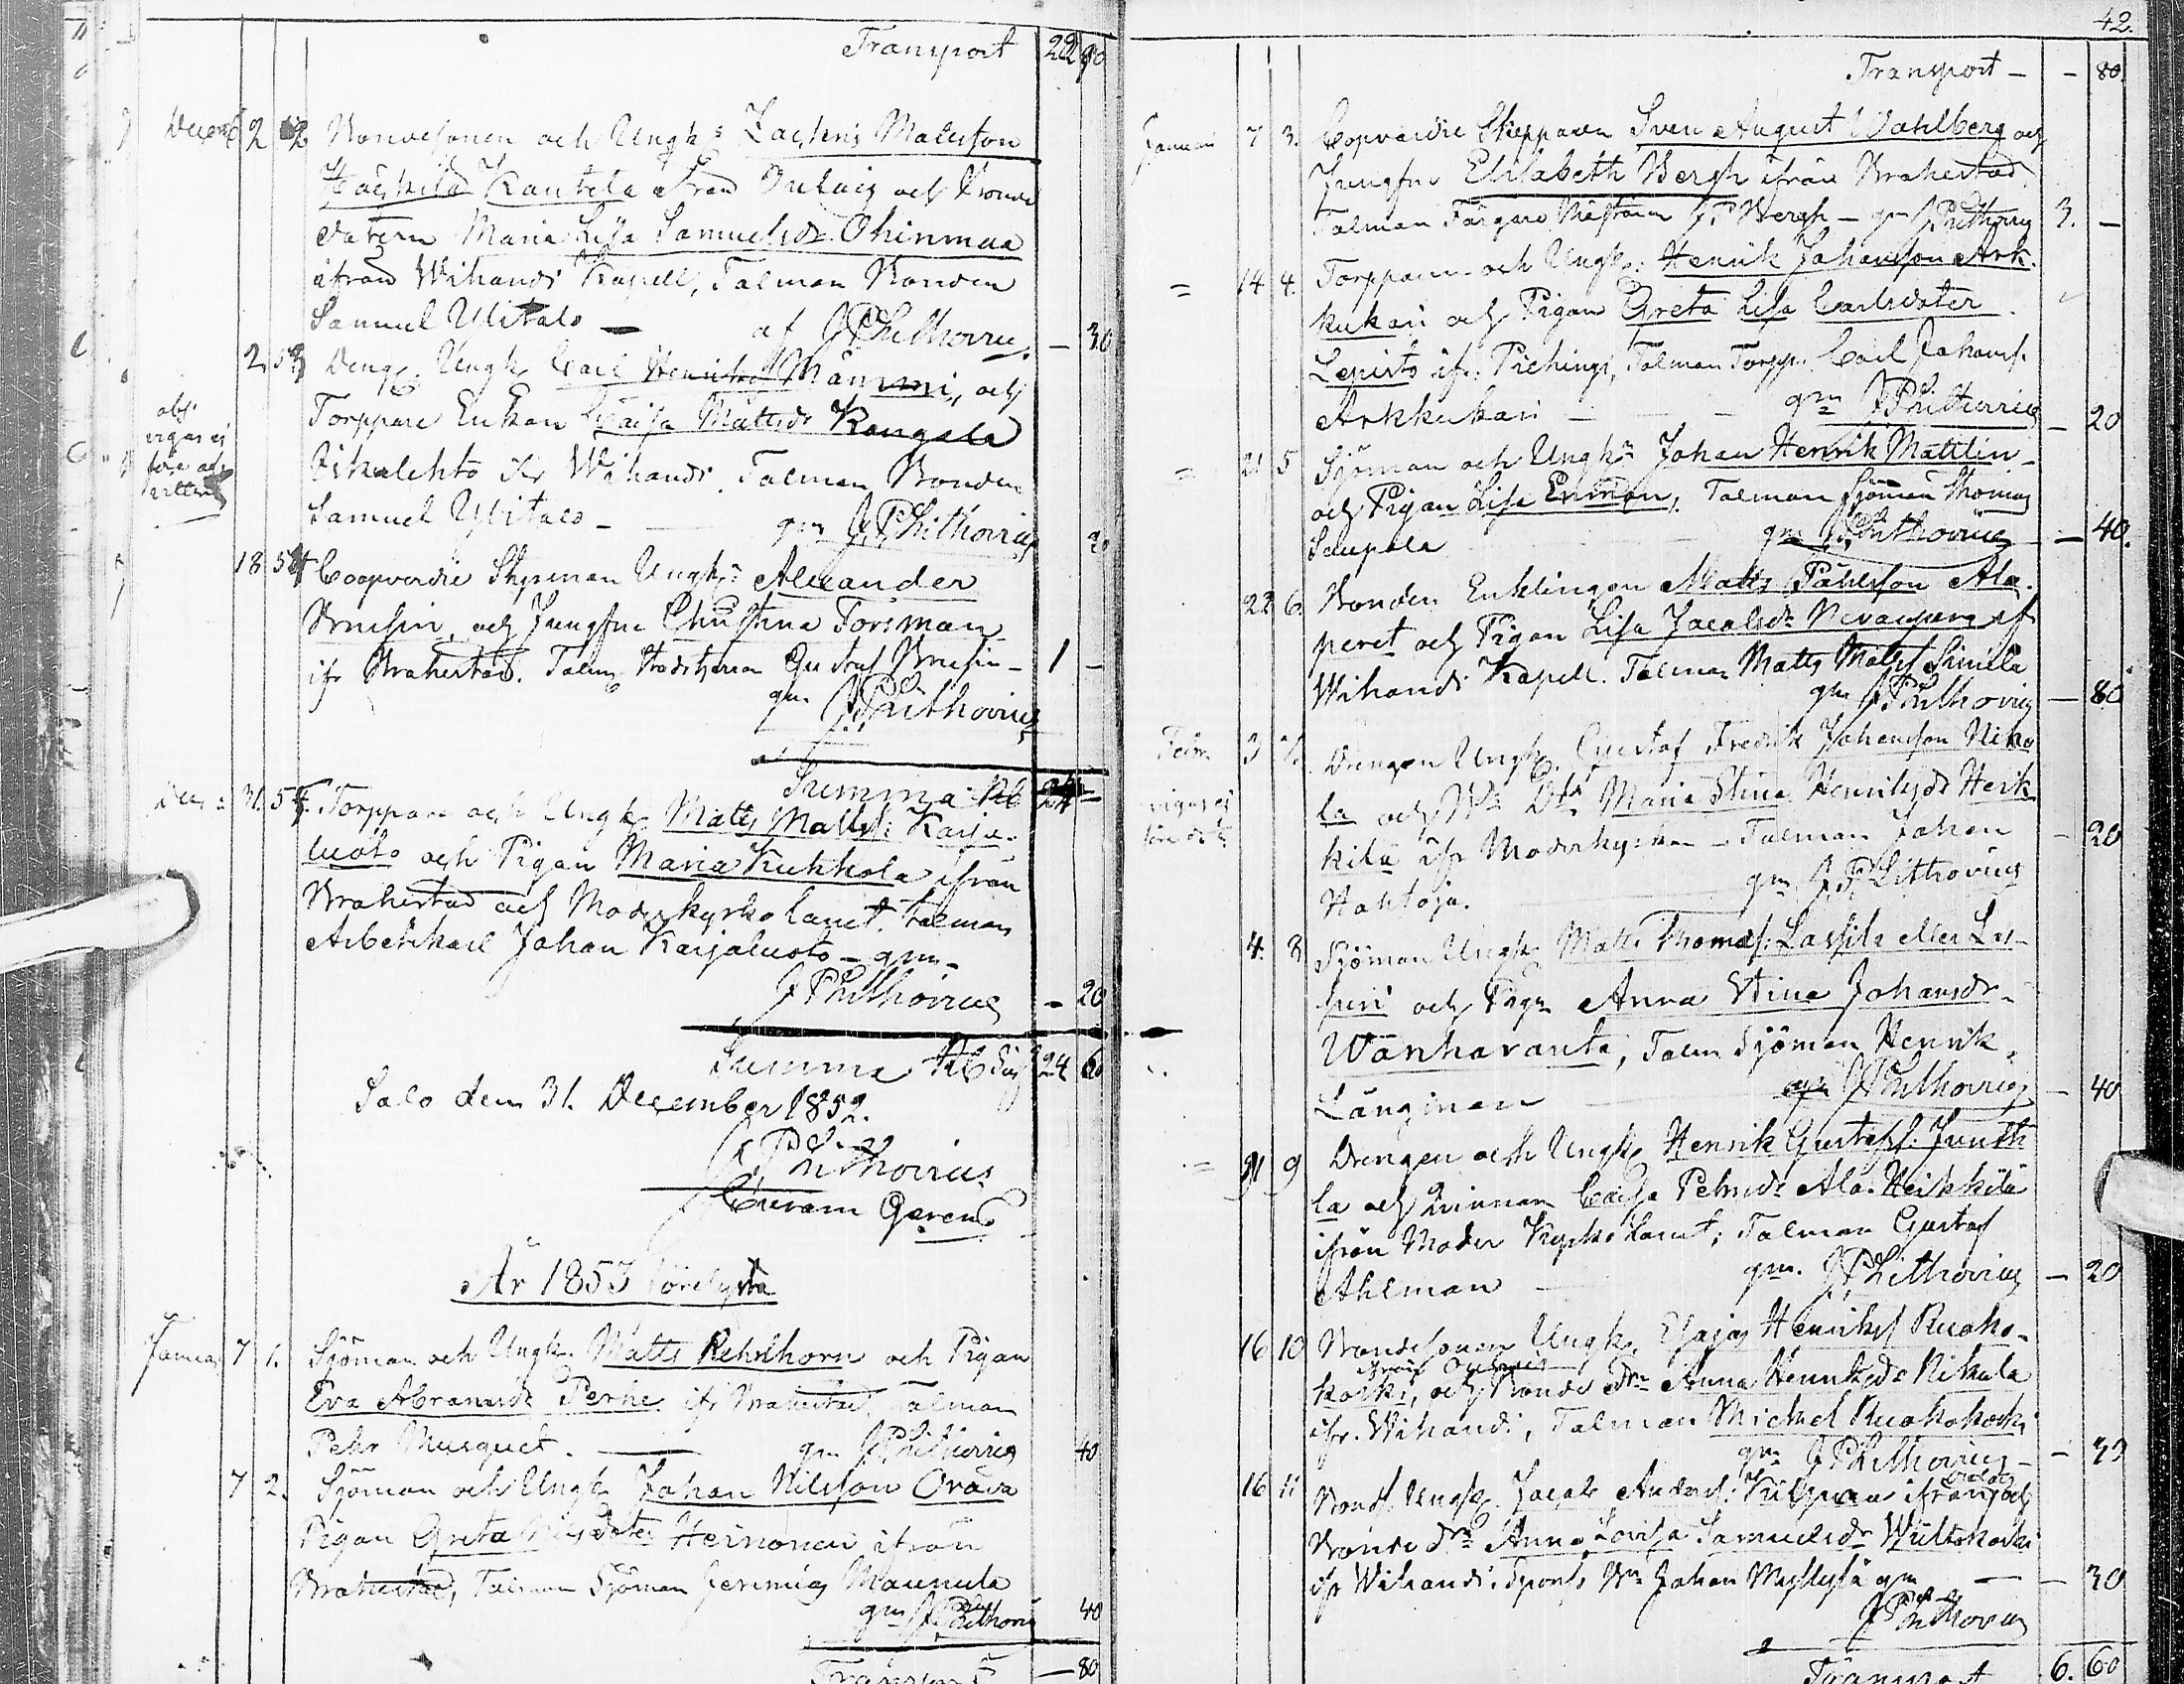 Transport 22 90
Decemb 2 52 Bondesonen och Ungk: Zachris Mattsson
Kautela ifrån och Bonde
datern Maria Lisa Samuelsdr. Ohinmaa
ifrån Wihandi Kapell, Talman Bonden
Samuel Ylitalo — af JPLithovius — 30
2 53 Deng. Ungk. Carl Henriks Mämmi, och
Torppare Enkan Caisa Mattsdr Kangala
ifr Wihandi. Talman Bonden
Samuel Ylitalo — gm JPLithovius
18 54 Coopverdie Styrman Ungk: Alexander
Brusiin, och Jungfru Christina Forsman
ifr Brahestad. Talm Gustaf Brusin — 1 —
gm JPLithovius
Summa Rbl 24
Dec: 31. 55. Torppare och Ungk. Matts Matts: Karja-
luoto och Pigan Maria Kukkola ifrån
Brahestad och Moderkyrkolaget. Talman
Arbetskarl Johan Karjaluoto — gm —
JPLithovius — 20
Summa Rbl Silf 24 60
Salo den 31. December 1852.
JPLithovius
Curam Gerens
År 1853 lörelysta
Januari 7 1. Sjöman och Ungk. Matts Rehnhorn och Pigan
Eva Abramsdr Perhe ifr Brahestad, Talman
Pehr Musquet. — gm JPLithovius 40
7 2. Sjöman och Ungk. Johan Nilsson Orava
Pigan Greta Nilsdoter Heinonen ifrån
Brahestad, Talman Sjöman Jeremias Maunula
gm JPLithovius 40
Transport — 80
42.
Transport — — 80
Januari 7 3. Copvardie Skepparen Sven August Wahlberg och
Jungfru Elisabeth Bergh ifrån Brahestad
Talman Färgare Mästaren J P Bergh — gm JPLithovius 3. —
= 14 4. Torpparen och Ungk: Henrik Johansson Ark-
kukari och Pigan Greta Lisa Carlsdoter
Lepisto ifr. Piehingi, Talman Torpp. Carl Johans.
Arkkukari — gm JPLithovius — 20
= 21 5 Sjöman och Ungk: Johan Henrik Mattlin
och Pigan Lisa Enman, Talman Sjöman Thomas
Saupala gm JPLithovius — 40.
22 6. Bonden Enklingen Matts Påhlsson Ala-
peret och Pigan Lisa Jacobsdr Nevanperä if
Wihandi Kapell. Talman Matts Matts Simila
gm JPLithovius — 80
Febr. 3 7. Drengen Ungk. Gustaf Fredrik Johansson Niko
la och Bd Dtr Maria Stina Henriksdr Heik
kila ifr Moderkyrkan — Talman Johan — 20
Hahtoja. gm JPLithovius
4. 8 Sjöman Ungk. Matts Thomas: Lassila eller Las-
sien och Pign Anna Stina Johansdr
Wanharanta, Talm Sjöman Henrik
Länginen gm JPLithovius — 40
9 Drengen och Ungk. Henrik Gustafs. Junth
la och Qvinnan Caisa Petrusdr Ala-Heikkilä
ifrån Moder Kyrko Laget; Talman Gustaf
Ahlman — gm. JPLithovius — 20
16 10 Bondesonen Ungk. Esajas Henriks Ruoko-
koski, och Bonde dtr Anna Henriksdr Nikula
ifr. Wihandi, Talman Michel Ruokokoski
gm JPLithovius —
16 11 Bonds. Ungk. Jacob Anders: ifrån och
Bonde dtr Anna Lovisa Samuelsdr Wiiltokoski
ifr Wihandi. Spons. Bn Johan Myllylä gm — — 30
JPLithovius
Transport 6. 60